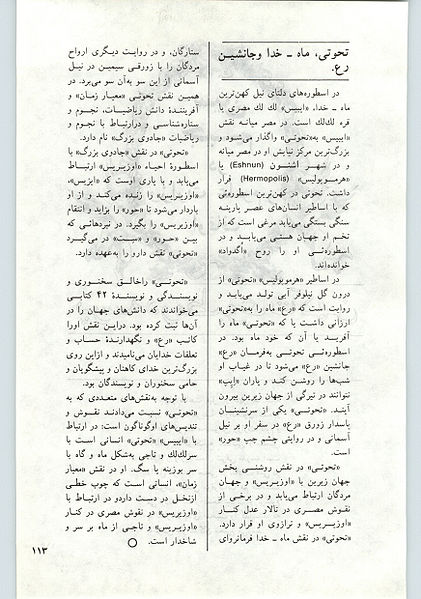 تحوتی، ماه ـ خدا وجانشین
رع.
در اسطوره‌های دلتای نیل کهن‌ترین
ماه ـ خدا، «ایبیس» لك لك مصری یا
قره لك‌لك است. در مصر میانه نقش
«ایبیس» به«تحوتی» واگذار می‌شود و
بزرگ‌ترین مرکز نیایش او در مصر میانه
و در شهر اشنون (Eshnun) یا
«هرموپولیس» (Hermopolis) قرار
داشت. تحوتی در کهن‌ترین اسطوره‌ئی
که با اساطیر انسان‌های عصر پارینه
سنگی بستگی می‌یابد مرغی است که از
تخم او جهان هستی می‌یابد و در
اسطوره‌ئی او را روح
خوانده‌اند.
در اساطیر «هرموپولیس» «تحوتی» از
درون گل نیلوفر آبی تولد می‌یابد و
روایت است که «رع» ماه را به«تحوتی»
ارزانی داشت یا که «تحوتی» ماه را
آفرید یا آن که خود ماه بود. در
اسطوره‌ئی تحوتی به‌فرمان «رع»
جانشین «رع» می‌شود تا در غیاب او
شب‌ها را روشن کند و یاران «اپپ»
نتوانند در تیرگی از جهان زیرین بیرون
آیند. «تحوتی» یکی از سرنشینان
پاسدار زورق «رع» در سفر او بر نیل
آسمانی و در روایتی چشم چپ «حور»
است.
«تحوتی» در نقش روشنی بخش
جهان زیرین با «اوزیریس» و جهان
مردگان ارتباط می‌یابد و در برخی از
نقوش مصری در تالار عدل کنار
«اوزیریس» و ترازوی او قرار دارد.
«تحوتی» در نقش ماه ـ خدا فرمانروای
ستارگان، و در روایت دیگری ارواح
مردگان را با زورقی سیمین در نیل
آسمانی از این سو به‌آن سو می‌برد. در
همین نقش تحوتی «معیار زمان» و
آفرینندهٔ دانش ریاضیات، نجوم و
ستاره‌شناسی و درارتباط با نجوم و
ریاضیات «جادوی بزرگ» نام دارد.
«تحوتی» در نقش «جادوی بزرگ» با
اسطورهٔ احیاء «اوزیریس» ارتباط
می‌یابد و با یاری اوست که «ایزیس»،
«اوزیریس» را زنده می‌کند و از او
باردار می‌شود تا «حور» را بزاید و انتقام
«اوزیریس» را بگیرد. در نبردهائی که
بین «حور» و «ست» در می‌گیرد
«تحوتی» نقش داور را به‌عهده دارد.
«تحوتی» راخالق سخنوری و
نویسندگی و نویسندهٔ ۴۲ کتابی
می‌خواندند که دانش‌های جهان را در
آن‌ها ثبت کرده بود. دراین نقش اورا
کاتب «رع» و نگهدارندهٔ حساب و
تعلقات خدایان می‌نامیدند و ازاین روی
بزرگ‌ترین خدای کاهنان و پیشگویان و
حامی سخنوران و نویسندگان بود.
با توجه به‌نقش‌های متعددی که به
«تحوتی» نسبت می‌دادند نقوش و
تندیس‌های اوگوناگون است: در ارتباط
با «ایبیس» «تحوتی» انسانی است با
سرلك‌لك و تاجی به‌شکل ماه و گاه با
سر بوزینه یا سگ. او در نقش «معیار
زمان»، انسانی است که چوب خطی
ازنخل در دست داردو در ارتباط با
«اوزیریس» در نقوش مصری در کنار
«اوزیریس» و تاجی از ماه بر سر و
شاخدار است.
۱۱۳